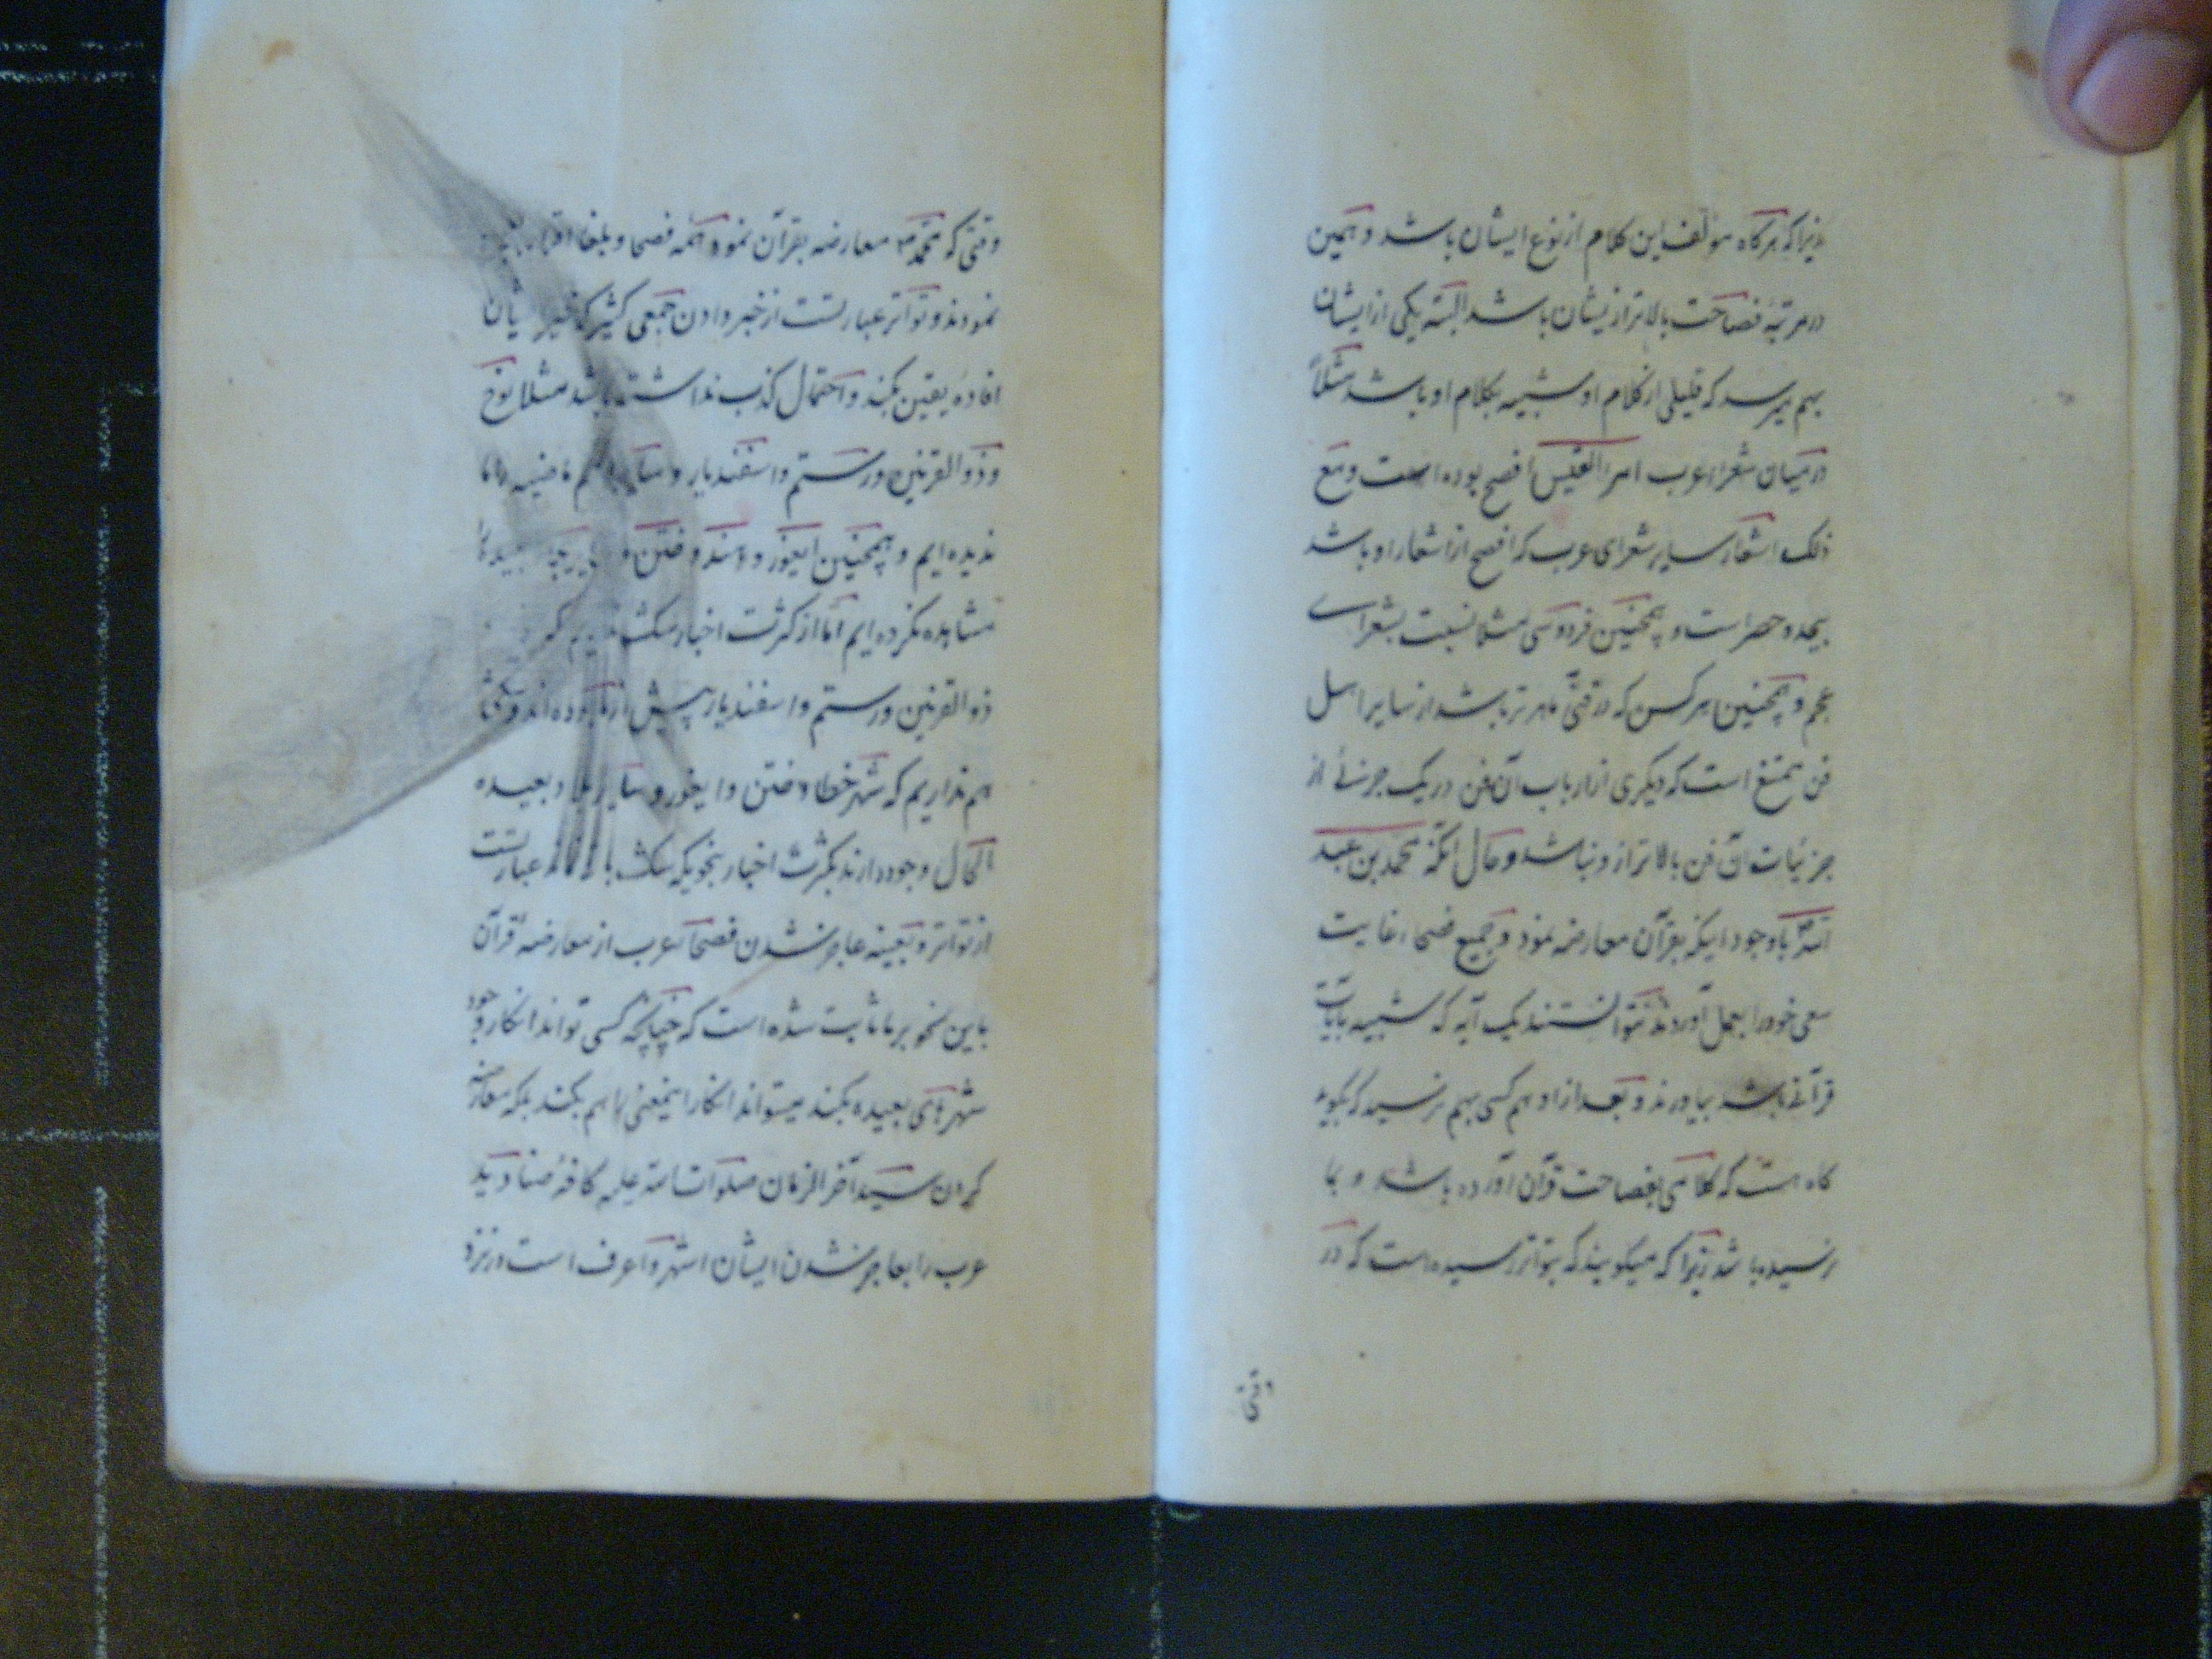 زیرا که هرگاه مؤلف این کلام از نوع ایشان باشد و همین
در مرتبهٔ فصاحت بالاتر از یشان باشد البته یکی از ایشان
بهم میرسد که قلیلی از کلام او شبیه بکلام او باشد مثلاً
در میان شعراء عرب امرا القیس افصح بوده است و مع
ذلک اشعار سایر شعرای عرب که افصح از اشعار او باشد
بیحد و حصر است و همچنین فردوسی مثلا نسبت بشعرای
عجم و همچنین هر کس که در فنّی ماهرتر باشد از سایر اهل
فن ممتنع است که دیگری از ارباب آن فن در یک جزئے از
جزئیات آن فن بالاتر از و نباشد و حال آنکه محمد بن عبد
الله با وجود اینکه بقرآن معارضه نمود و جمیع فصحا غایت
سعی خود را بعمل آوردند نتوانستند یک آیه که شبیه بآیات
قرآنے باشد بیاورند و بعد از او هم کسی بهم نرسید که بگوید
کاه هست که کلامی بفصاحت قرآن آورده باشد و بما
نرسیده باشد زیرا که میگویند که بتواتر رسیده است که در
وقتی
وقتی که محمد ص معارضه بقرآن نمود همه فصحا و بلغا
نمودند و تواتر عبارتست از خبر دادن جمعی کثیر که خبر ایشان
افاده یقین بکند و احتمال کذب نداشته باشد مثلا نوح
و ذو القرنین و رستم و اسفندیار و سایر امم ماضیه را ما
ندیده ایم و همچنین ایغور و هند و ختن و
مشاهده نکرده ایم امّا از کثرت اخبار شک نداریم که
ذو القرنین و رستم و اسفندیار پیش از ما بوده اند و شک
هم نداریم که شهر خطا و ختن و ایغور و سایر بلاد بعیده
الحال وجود دارند بکثرت اخبار بنحویکه شک عبارتست
از تواتر و بعینه عاجز شدن فصحاء عرب از معارضهٔ قرآن
باین نحو بر ما ثابت شده است که چنانچه کسی تواند انکار وجود
شهرهای بعیده بکند میتواند انکار اینمعنی را هم بکند بلکه معارضه
کردن سید آخر الزمان صلوات الله علیه کافهٔ صنادید
عرب را بعاجز شدن ایشان اشهر و اعرف است در نزد